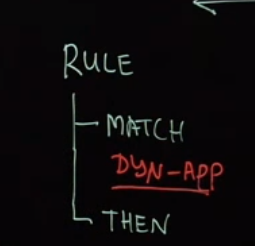 RULE
MATCH
DYN-APP
THEN